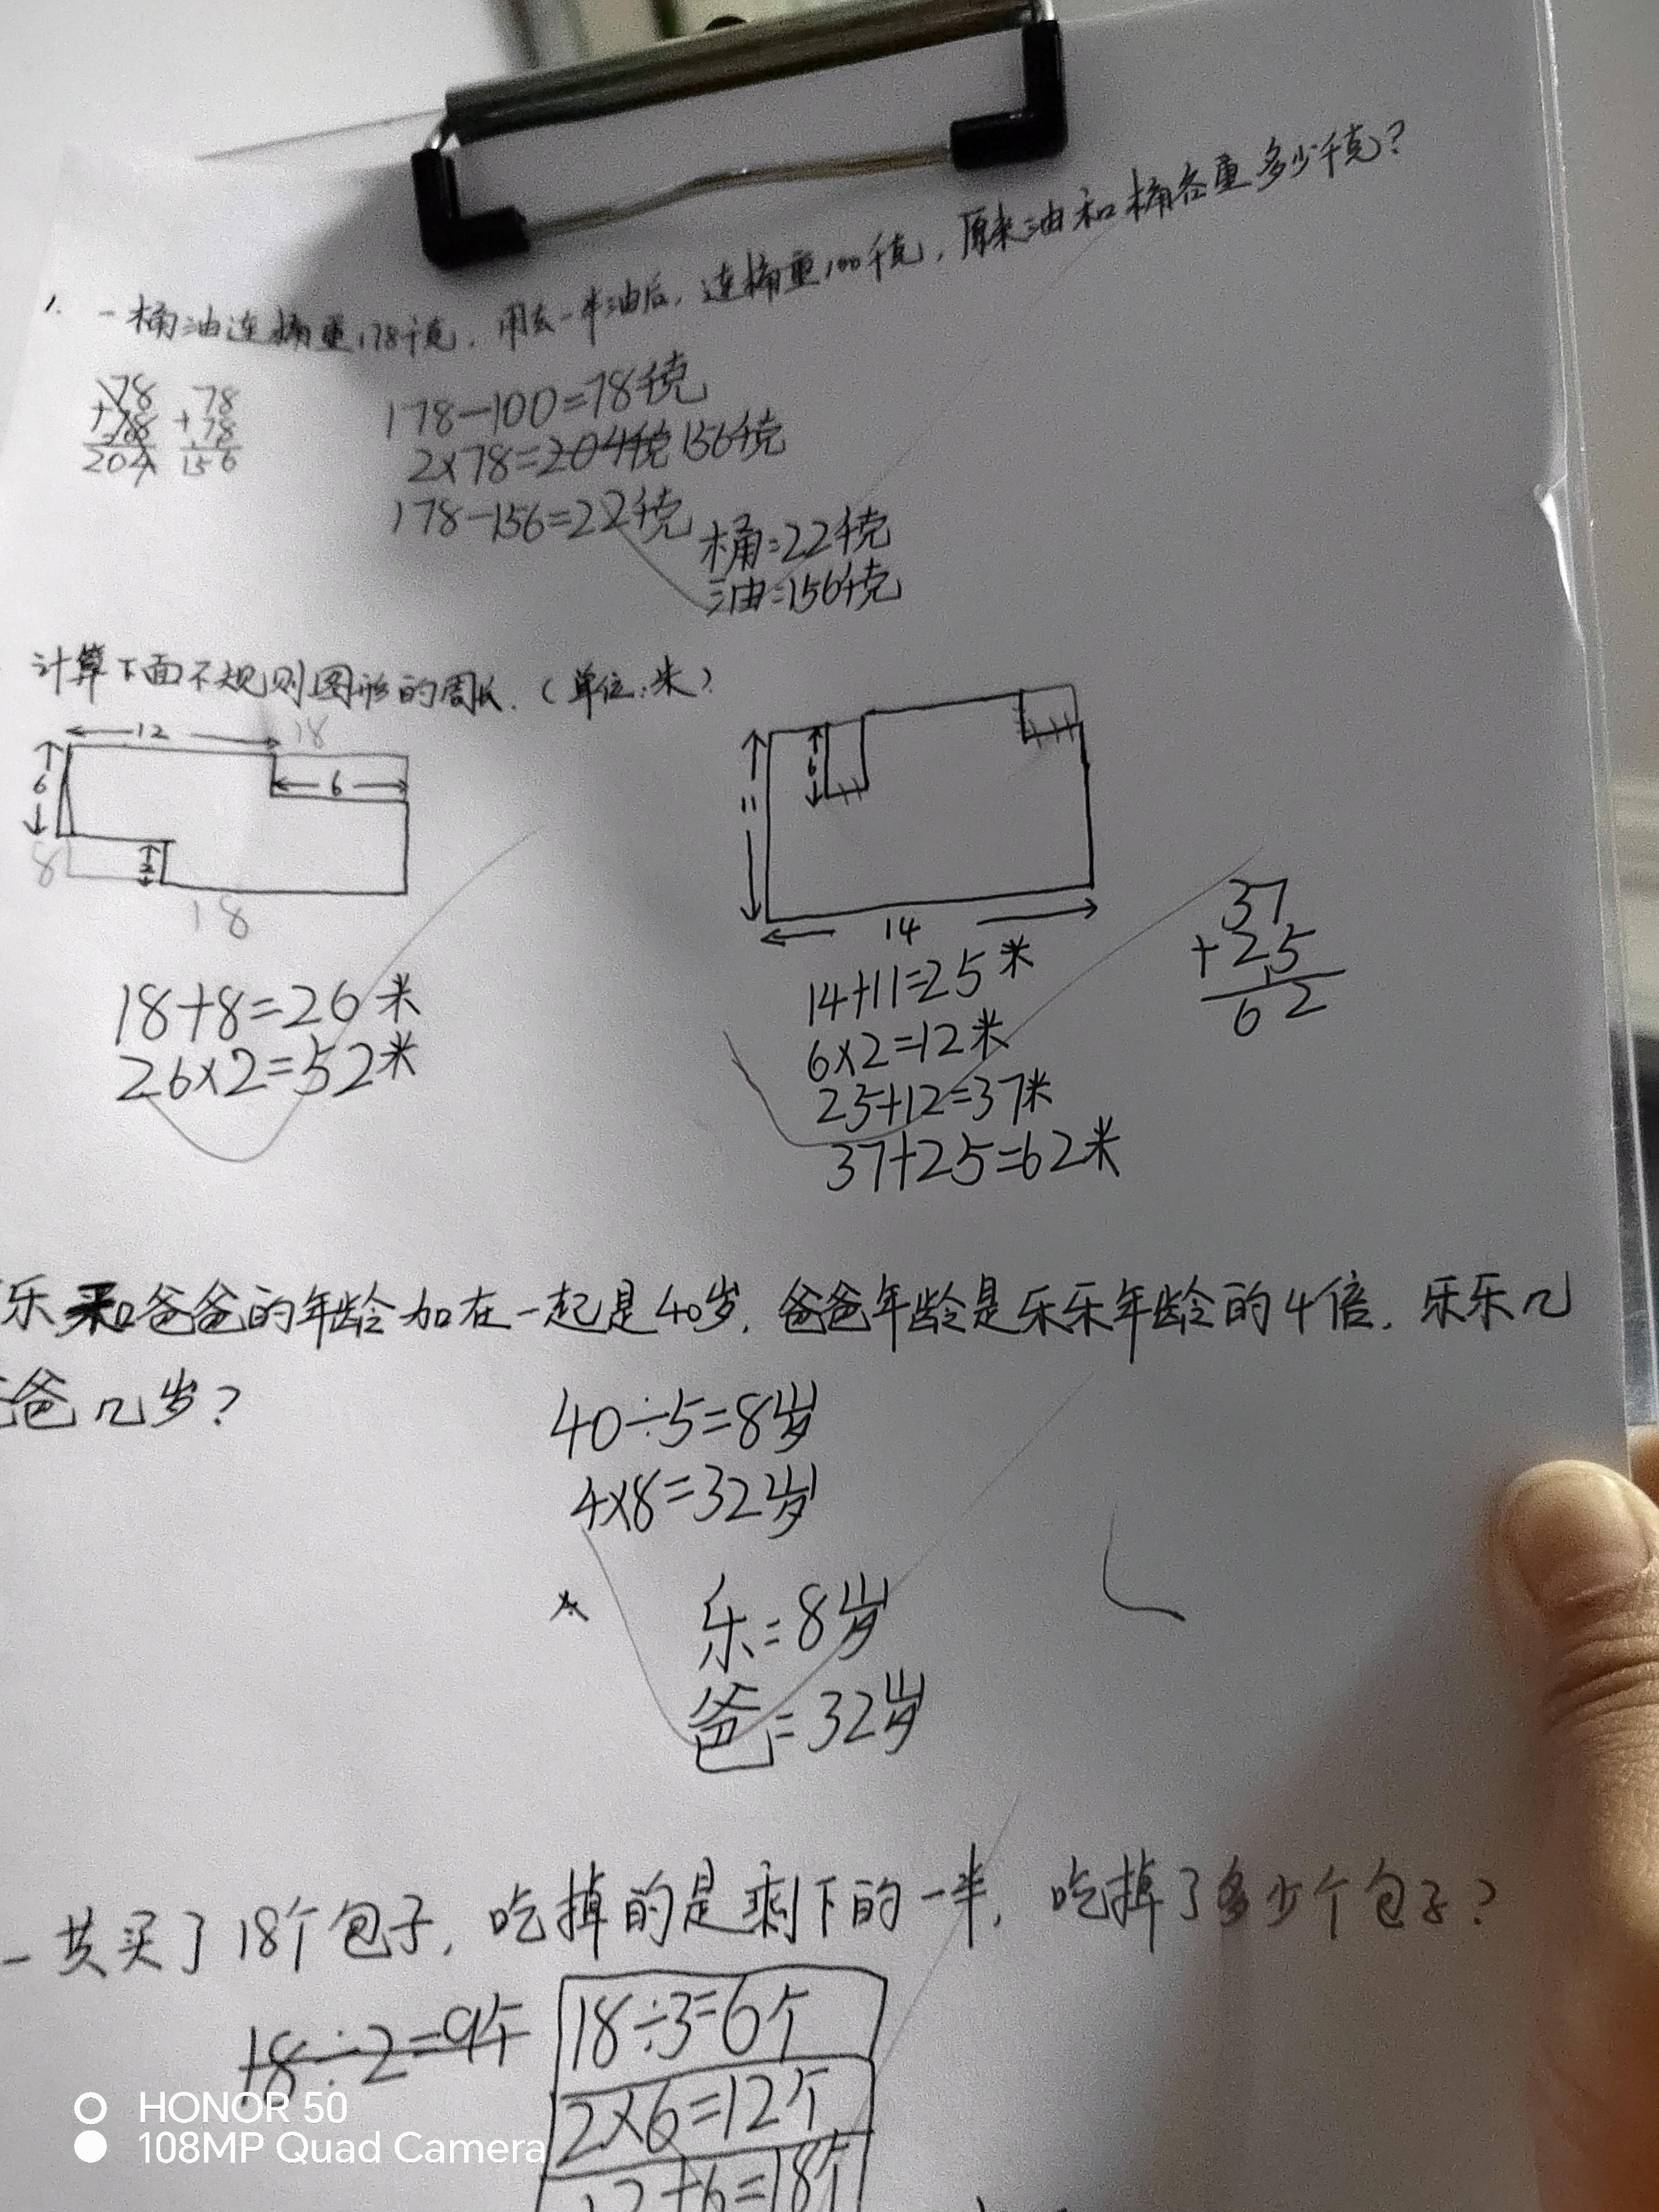 1. 一桶油连桶重178千克,用去一半油后,连桶重100千克,原来油和桶各重多少千克?
78 78
+78 +78
204 156
178-100=78千克
2×78=204千克 156千克
178-156=22千克
桶=22千克
油=156千克
计算下面不规则图形的周长.(单位:米)
12 18
6 6
8 2
18
18+8=26米
26×2=52米
6
11
14
14+11=25米
6×2=12米
25+12=37米
37+25=62米
37
+25
62
乐和爸爸的年龄加在一起是40岁,爸爸年龄是乐乐年龄的4倍.乐乐几
爸几岁?
40÷5=8岁
4×8=32岁
乐=8岁
爸=32岁
一共买了18个包子,吃掉的是剩下的一半,吃掉了多少个包子?
18÷2=9个
18÷3=6个
2×6=12个
12+6=18个
HONOR 50
108MP Quad Camera